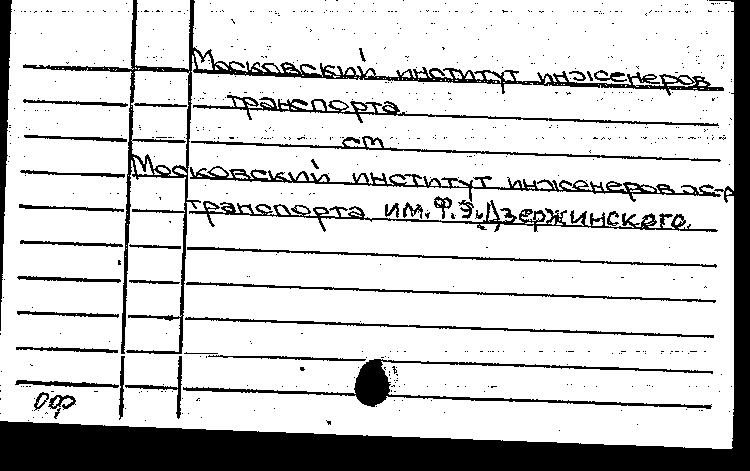 Московский институт инженеров
транспорта
см
Московский институт инженеров ж-д
транспорта им. Ф.Э. Дзержинского.